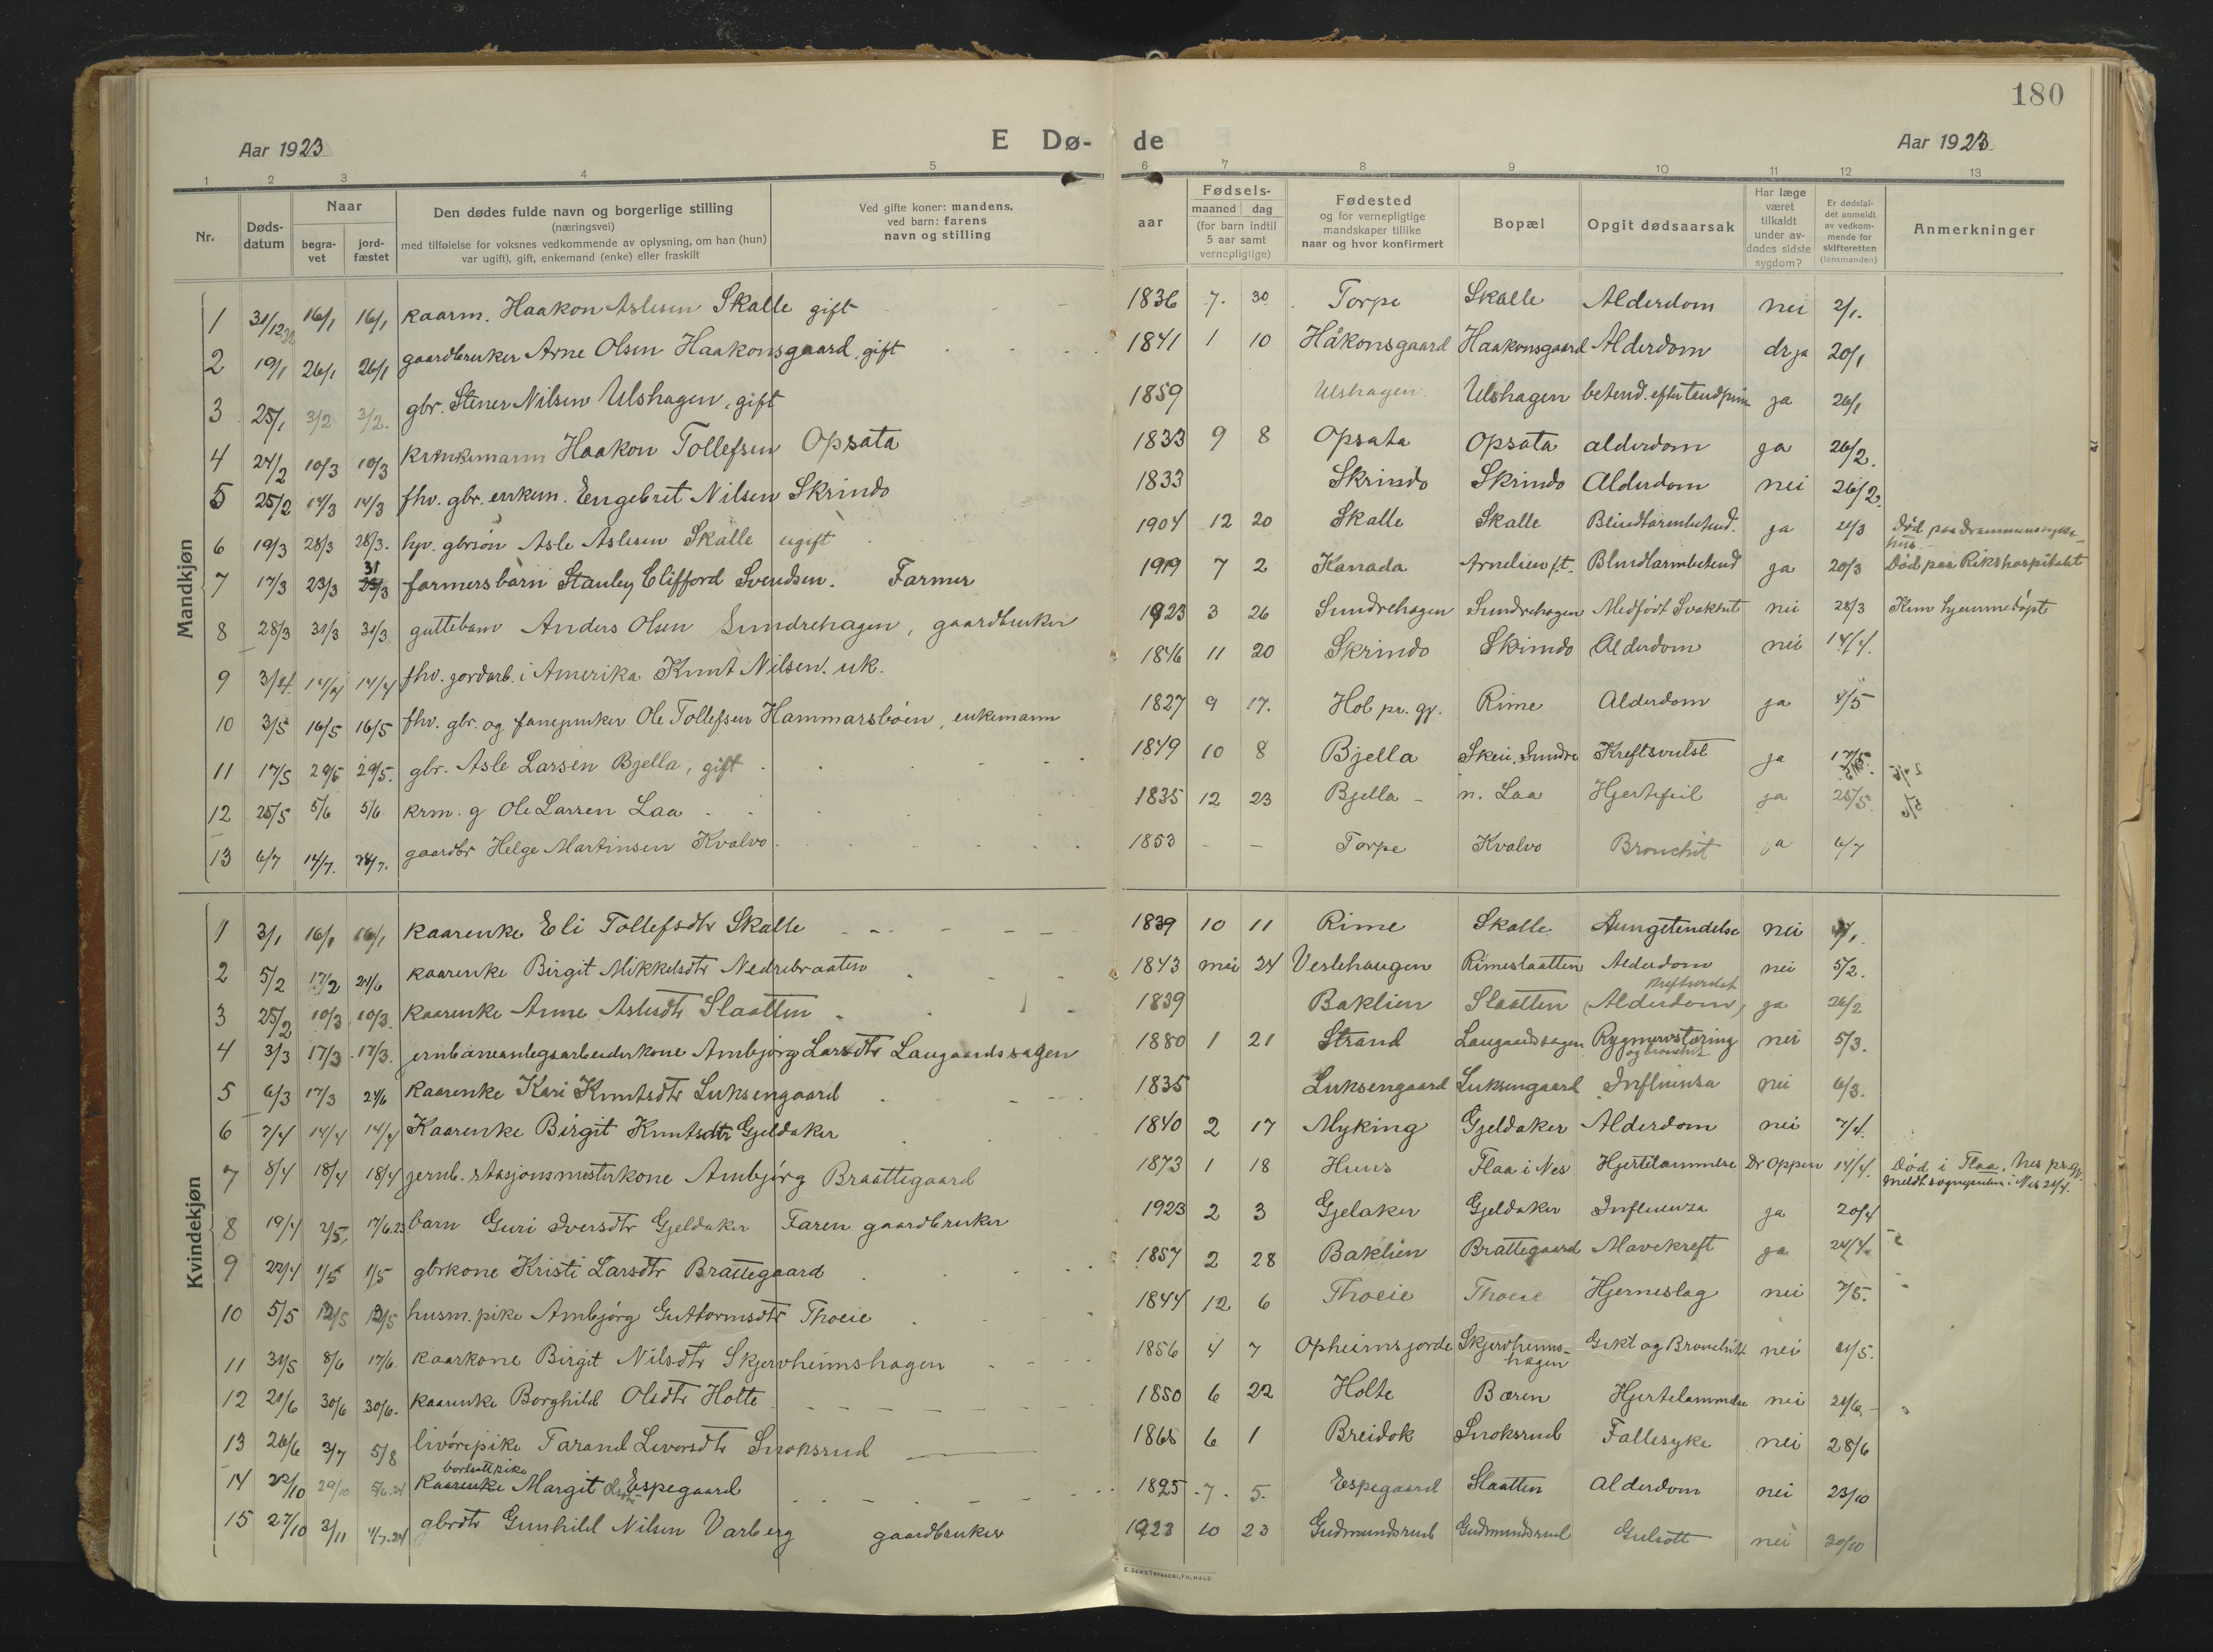 180
Aar 1923 E Dø- de Aar 1923
1 2 3 4 5 6 7 8 9 10 11 12 13
Nr.
Døds-
datum
Naar
begra-
vet
jord-
fæstet
Den dødes fulde navn og borgerlige stilling
(næringsvei)
med tilføielse for voksnes vedkommende av oplysning, om han (hun)
var ugift), gift, enkemand (enke) eller fraskilt
Ved gifte koner: mandens,
ved barn: farens
navn og stilling
aar
Fødsels-
maaned dag
(for barn indtil
5 aar samt
vernepligtige)
Fødested
og for vernepligtige
mandskaper tillike
naar og hvor konfirmert
Bopæl
Opgit dødsaarsak
Har læge
været
tilkaldt
under av-
dødes sidste
sygdom?
Er dødsfal-
det anmeldt
av vedkom-
mende for
skifteretten
(lensmanden)
Anmerkninger
Mandkjøn
1 31/12 16/1 16/1 kaarm. Haakon Aslesen Skalle gift 1836 7. 30 Torpe Skalle Alderdom nei 2/1.
2 19/1 26/1 26/1 gaardbruker Arne Olsen Haakonsgaard, gift 1841 1 10 Håkonsgaard Haakonsgaard Alderdom dr ja 20/1
3 25/1 3/2 3/2. gbr. Stener Nilsen Ulshagen, gift 1859 Ulshagen Ulshagen betend. efter tandpine ja 26/1
4 24/2 10/3 10/3 Haakon Tollefsen Opsata 1833 9 8 Opsata Opsata alderdom ja 26/2.
5 25/2 14/3 14/3 fhv. gbr. enkem. Engebret Nilsen Skrindo 1833 Skrindo Skrindo Alderdom nei 26/2.
6 19/3 28/3 28/3. hjv. gbrsøn Asle Aslesen Skalle ugift 1904 12 20 Skalle Skalle Blindtarmbetend. ja 21/3 Død paa Drammens syke-
hus.
7 17/3 23/3 31 23/3 farmersbarn Stanley Clifford Svendsen. Farmer 1919 7 2 Kanada Arnelien f.t. Blindtarmbetend ja 20/3 Død paa Rikshospitalet
8 28/3 31/3 31/3 guttebarn Anders Olsen Sundrehagen, gaardbruker 1923 3 26 Sundrehagen Sundrehagen Medfødt Svakhet nei 28/3 Kun hjemmedøpt
9 3/4. 14/4 14/4 fhv. jordarb. i Amerika Knut Nilsen. uk. 1846 11 20 Skrindo Skrindo Alderdom nei 14/4.
10 3/5 16/5 16/5 fhv. gbr. og Ole Tollefsen Hammarsbøen, enkemann 1827 9 17. Hol pr. gj. Rime Alderdom ja 4/5
11 17/5 29/5 29/5. gbr. Asle Larsen Bjella, gift 1849 10 8 Bjella Skeie, Sundre Kreftsvulst ja 17/5.
12 25/5 5/6 5/6 krm. g Ole Larsen Laa 1835 12 23 Bjella n. Laa Hjertefeil ja 25/5.
13 6/7 14/7. 24/7. gaardbr Helge Martinsen Kvalvo 1853 - - Torpe Kvalvo Bronchit ja 6/7
Kvindekjøn
1 3/1 16/1 16/1 kaarenke Eli Tollefsdtr Skalle 1839 10 11 Rime Skalle Lungetendelse nei
2 5/2 17/2 24/6 kaarenke Birgit Mikkelsdtr Nedrebraaten 1843 mai 24 Veslehaugen Rimeslaatten Alderdom nei 5/2.
3 25/2 10/3 10/3. kaarenke Anne Aslesdtr Slaatten 1839 Baklien Slaatten (Alderdom) ja 26/2
4 3/3 17/3 17/3. jernbaneanlegsarbeiderkone Ambjørg Larsdtr Laugaardssagen 1880 1 21 Strand Laugaardssagen Rygmervstæring
og bronchit nei 5/3.
5 6/3 17/3 24/6 kaarenke Kari Knutsdtr Luksengaard 1835 Luksengaard Luksengaard Influensa nei 6/3.
6 7/4 14/4 14/4 Kaarenke Birgit Knutsdtr Gjeldaker 1840 2 17 Myking Gjeldaker Alderdom nei 7/4.
7 8/4 18/4 18/4 jernb. stasjonsmesterkone Ambjørg Braattegaard 1873 1 18 Huns Flaa i Nes Hjertelammelse Dr Oppen 14/4. Død i Flaa, Nes pr.gj.
meldt sognepresten i Nes 21/4.
8 19/4 2/5, 17/6.23 barn Guri Iversdtr Gjeldaker Faren gaardbruker 1923 2 3 Gjelaker Gjeldaker Influenza ja 20/4
9 22/4 1/5 1/5 gbrkone Kristi Larsdtr Brattegaard 1857 2 28 Baklien Brattegaard Mavekreft ja 24/4
10 5/5 12/5 12/5 husm. pike Ambjørg Guttormsdtr Thoeie 1844 12 6 Thoeie Thoeie Hjerneslag nei 7/5.
11 31/5 8/6 17/6 kaarkone Birgit Nilsdtr Skjervheimshagen 1856 4 7 Opheimsjorde Skjervheims-
hagen Gikt og Bronchitt nei 31/5.
12 21/6 30/6 30/6. kaarenke Borghild Olsdtr Holte 1850 6 22 Holte Bæren Hjertelammelse nei 21/6
13 26/6 3/7 5/8 livørepike Tarand Livorsdtr Snoksrud 1868 6 1 Breidok Snoksrud Fallesyke nei 28/6
bortsattpike
14 22/10 29/10 5/6.24 kaarenke Margit Olsdtr Espegaard 1825 7. 5. Espegaard Slaatten Alderdom nei 23/10
15 27/10 3/11 4/7.24 gbrdtr Gunhild Nilsen Varberg gaardbruker 1923 10 23 Gudmundsrud Gudmundsrud Gulsott nei 30/10